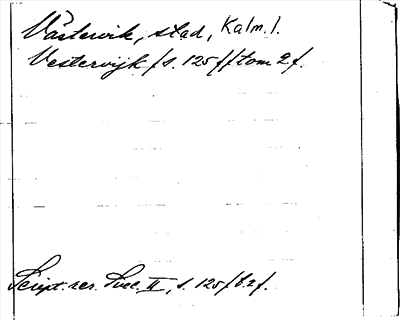 Västervik, stad, Kalm. l.
Vestervijk /s. 125 f/ tom 2 f.
Script. rer. Svec. II, s. 125 f b. 2 f.